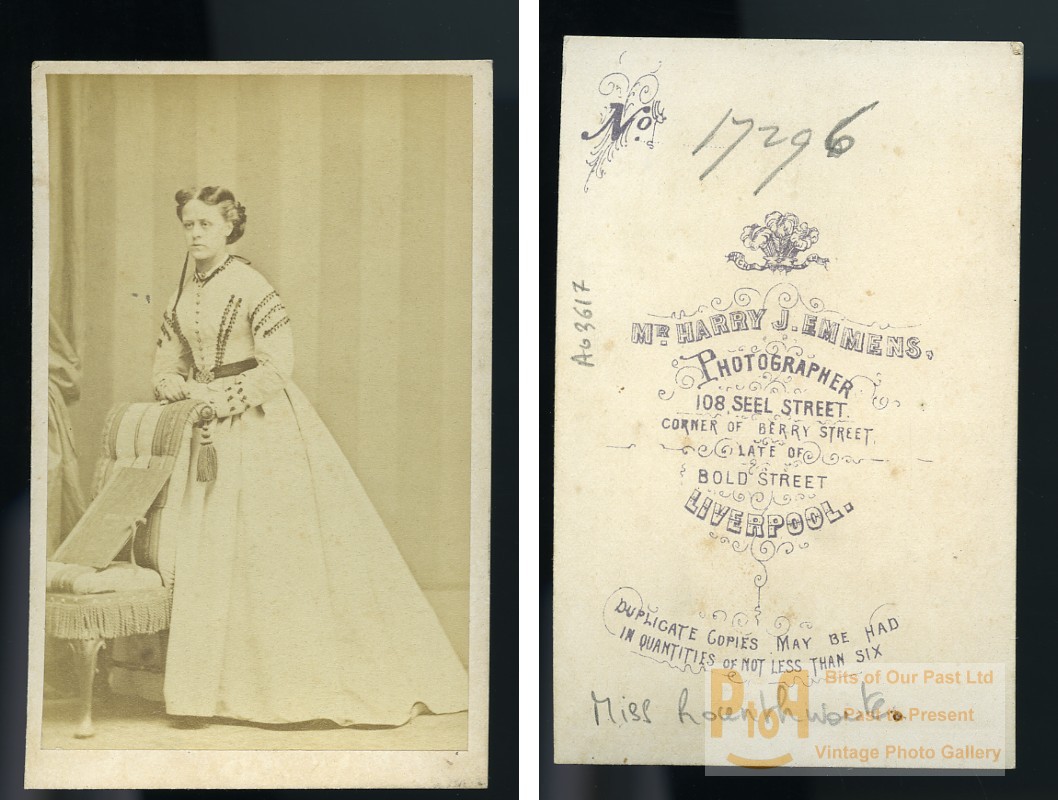 No. 17296
A63617
MR HARRY J. EMMENS,
PHOTOGRAPHER
108, SEEL STREET.
CORNER OF BERRY STREET,
LATE OF
BOLD STREET
LIVERPOOL.
DUPLICATE COPIES MAY BE HAD
IN QUANTITIES OF NOT LESS THAN SIX
Miss
PtoP
Bits of Our Past Ltd
Past to Present
Vintage Photo Gallery